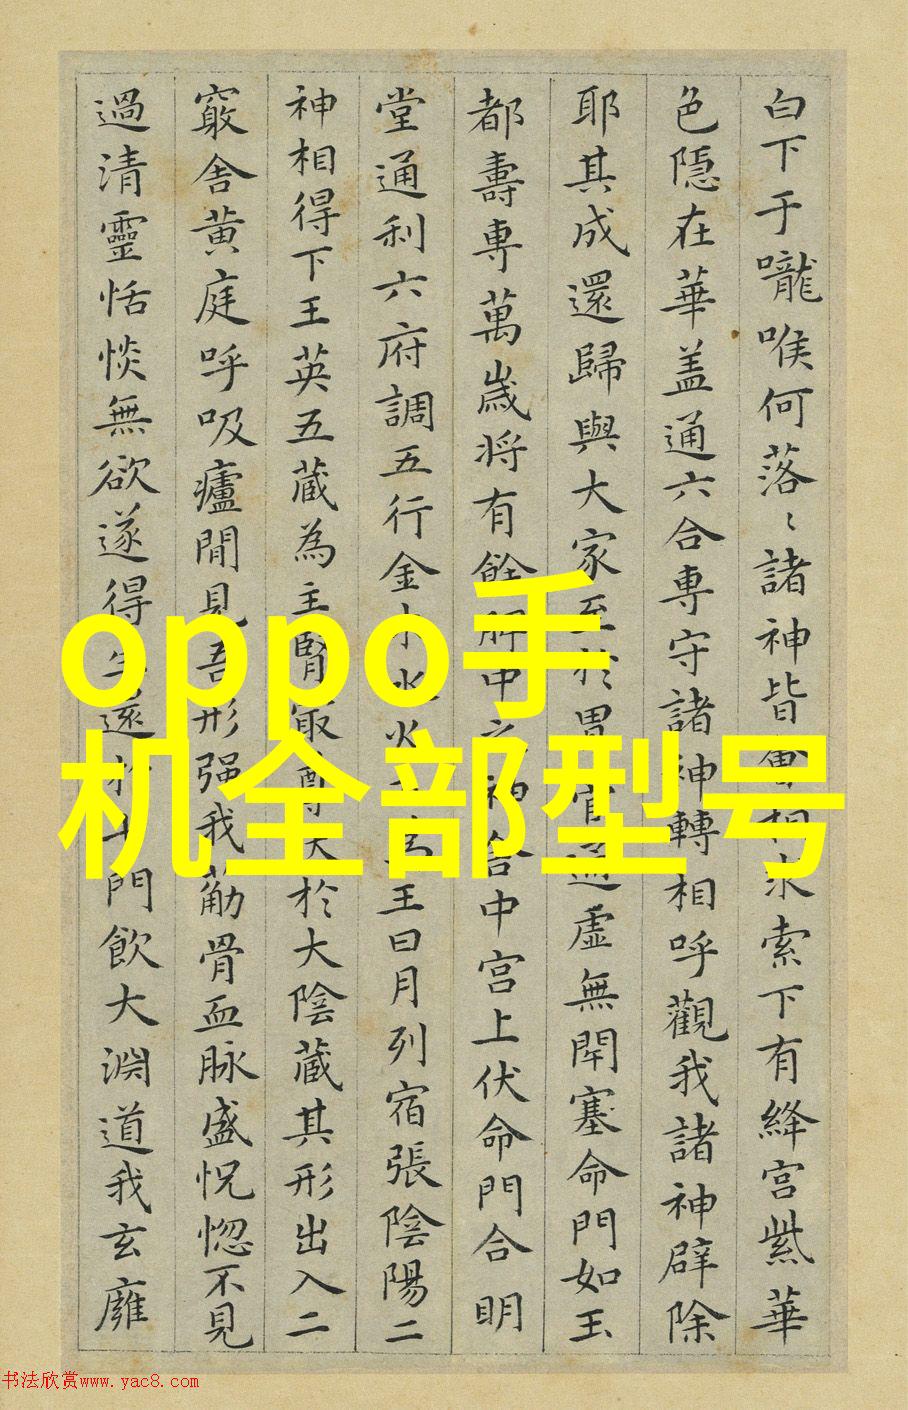 白下于嚨喉何落〻諸神皆會相求索下有絳宮紫華
色隱在華盖通六合專守諸神轉相呼觀我諸神辟除
耶其成還歸與大家至於胃管通虛無閈塞命門如玉
都壽專萬歲将有餘脾中之神舍中宮上伏命門合明
堂通利六府調五行金木水火土為王日月列宿張陰陽二
神相得下王英五藏為主腎㝡尊伏於大陰藏其形出入二
竅舍黄庭呼吸廬閒見吾形强我筋骨血脉盛怳惚不見
過清靈恬惔無欲遂得生還於七門飲大淵道我玄廱
oppo手
机全部型号
书法欣赏www.yac8.com